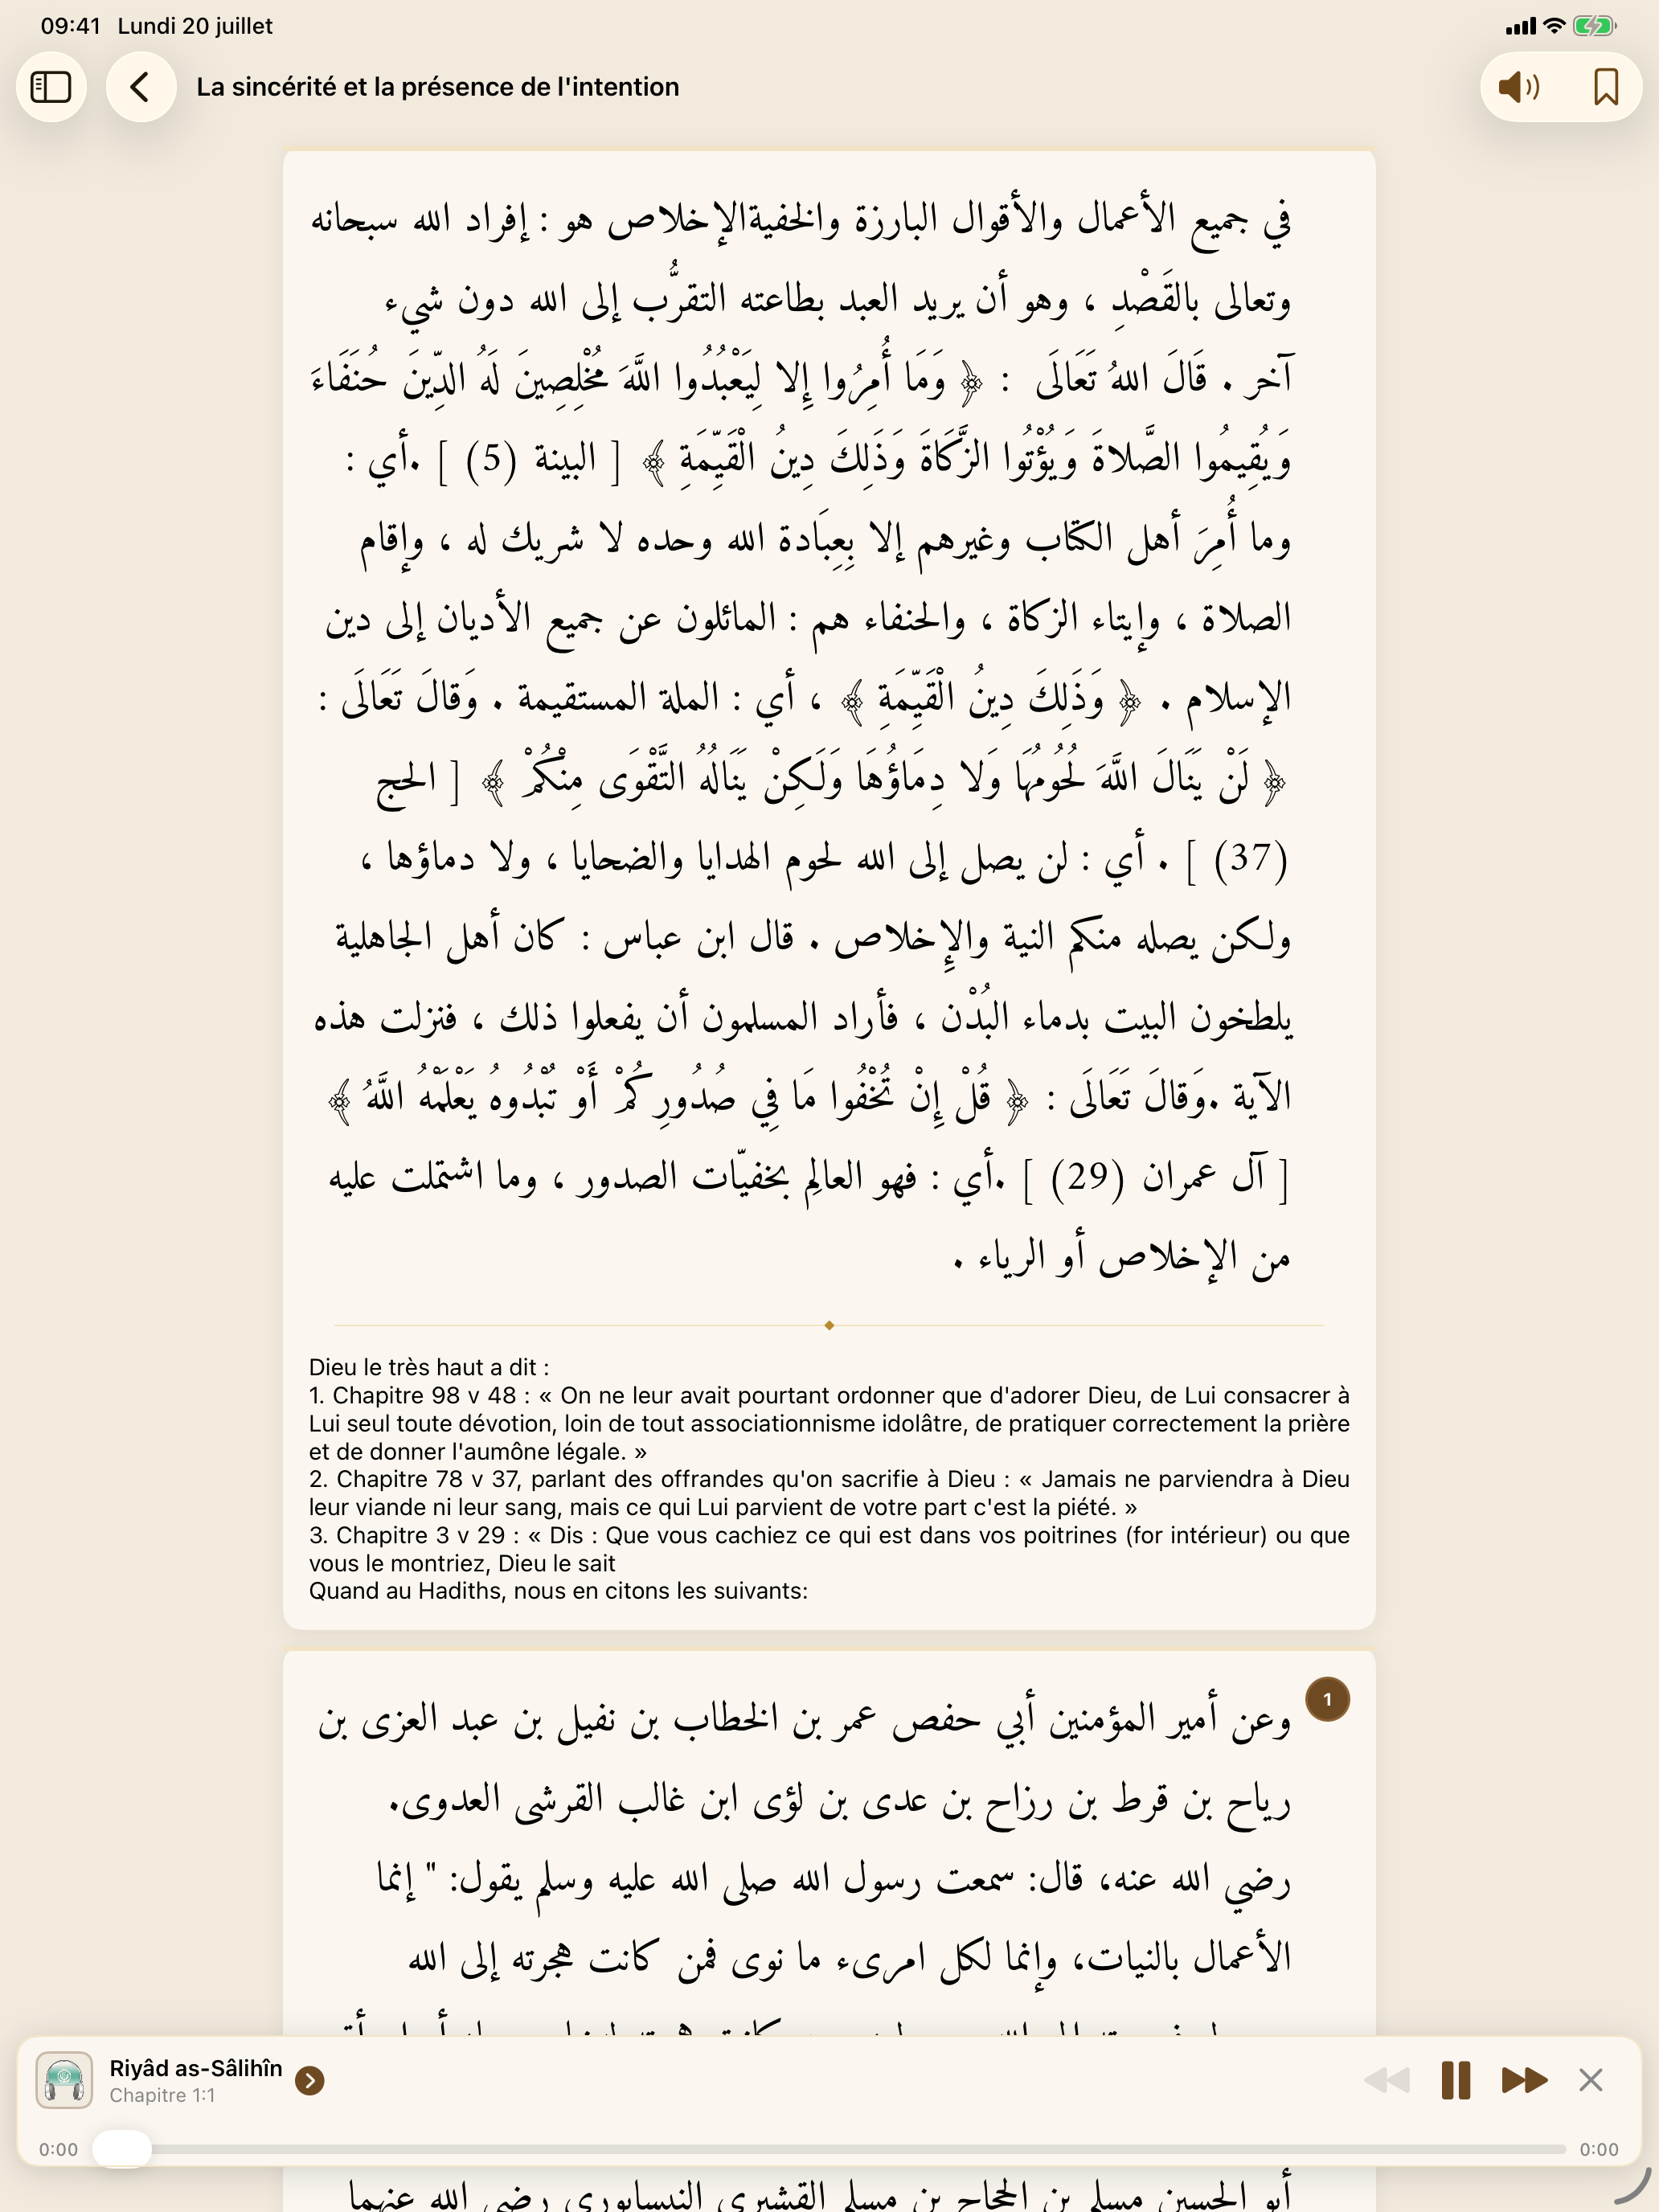 09:41 Lundi 20 juillet
La sincérité et la présence de l'intention
في جميع الأعمال والأقوال البارزة والخفيةالإخلاص هو : إفراد الله سبحانه
وتعالى بالقَصْدِ ، وهو أن يريد العبد بطاعته التقرُّب إلى الله دون شيء
آخر . قَالَ اللهُ تَعَالَى : ﴿ وَمَا أُمِرُوا إِلا لِيَعْبُدُوا اللَّهَ مُخْلِصِينَ لَهُ الدِّينَ حُنَفَاءَ
وَيُقِيمُوا الصَّلاةَ وَيُؤْتُوا الزَّكَاةَ وَذَلِكَ دِينُ الْقَيِّمَةِ ﴾ [ البينة (5) ] .أي :
وما أُمِرَ أهل الكتاب وغيرهم إلا بِعِبَادة الله وحده لا شريك له ، وإقام
الصلاة ، وإيتاء الزكاة ، والحنفاء هم : المائلون عن جميع الأديان إلى دين
الإسلام . ﴿ وَذَلِكَ دِينُ الْقَيِّمَةِ ﴾ ، أي : الملة المستقيمة . وَقالَ تَعَالَى :
﴿ لَنْ يَنَالَ اللَّهَ لُحُومُهَا وَلا دِمَاؤُهَا وَلَكِنْ يَنَالُهُ التَّقْوَى مِنْكُمْ ﴾ [ الحج
(37) ] . أي : لن يصل إلى الله لحوم الهدايا والضحايا ، ولا دماؤها ،
ولكن يصله منكم النية والإِخلاص . قال ابن عباس : كان أهل الجاهلية
يلطخون البيت بدماء البُدْن ، فأراد المسلمون أن يفعلوا ذلك ، فنزلت هذه
الآية .وَقالَ تَعَالَى : ﴿ قُلْ إِنْ تُخْفُوا مَا فِي صُدُورِكُمْ أَوْ تُبْدُوهُ يَعْلَمْهُ اللَّهُ ﴾
[ آل عمران (29) ] .أي : فهو العالِم بخفيّات الصدور ، وما اشتملت عليه
من الإخلاص أو الرياء .
Dieu le très haut a dit :
1. Chapitre 98 v 48 : « On ne leur avait pourtant ordonner que d'adorer Dieu, de Lui consacrer à
Lui seul toute dévotion, loin de tout associationnisme idolâtre, de pratiquer correctement la prière
et de donner l'aumône légale. »
2. Chapitre 78 v 37, parlant des offrandes qu'on sacrifie à Dieu : « Jamais ne parviendra à Dieu
leur viande ni leur sang, mais ce qui Lui parvient de votre part c'est la piété. »
3. Chapitre 3 v 29 : « Dis : Que vous cachiez ce qui est dans vos poitrines (for intérieur) ou que
vous le montriez, Dieu le sait
Quand au Hadiths, nous en citons les suivants:
1
وعن أمير المؤمنين أبي حفص عمر بن الخطاب بن نفيل بن عبد العزى بن
رياح بن قرط بن رزاح بن عدى بن لؤى ابن غالب القرشى العدوى.
رضي الله عنه، قال: سمعت رسول الله صلى الله عليه وسلم يقول: " إنما
الأعمال بالنيات، وإنما لكل امرىء ما نوى فمن كانت هجرته إلى الله
Riyâd as-Sâlihîn
Chapitre 1:1
0:00
0:00
أبو الحسين مسلم بن الحجاج بن مسلم القشيري النيسابوري رضي الله عنهما